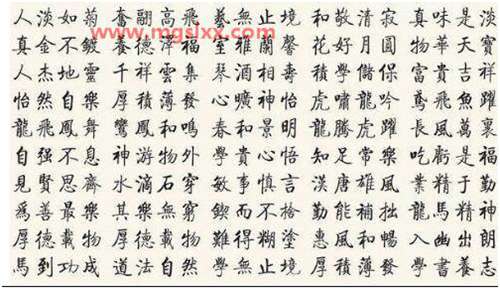 人淡如菊 奮翮高飛 藝無止境 和敬清寂 真味是淡
www.mgslxx.com
真金不鍍 養德澤福 室雅蘭馨 花好月圓 物華天寶
人杰地靈 千祥雲集 琴酒 壽 學 保 富貴吉祥
怡然自樂 厚積薄發 心曠神怡 虎嘯龍吟 鳶飛魚躍
龍飛鳳舞 鸞鳳和鳴 春和景明 龍騰虎躍 長風萬裏
自强不息 神游物外 學貴心悟 知足常樂 吃虧是福
見賢思齊 水滴石穿 敏事慎言 漢唐雄風 業精于勤
爲善最樂 其樂無窮 鍥而不捨 勤能補拙 龍馬精神
厚德載物 厚德載物 難得糊塗 惠風和暢 入幽出朗
馬到功成 道法自然 學無止境 厚積薄發 學書養志